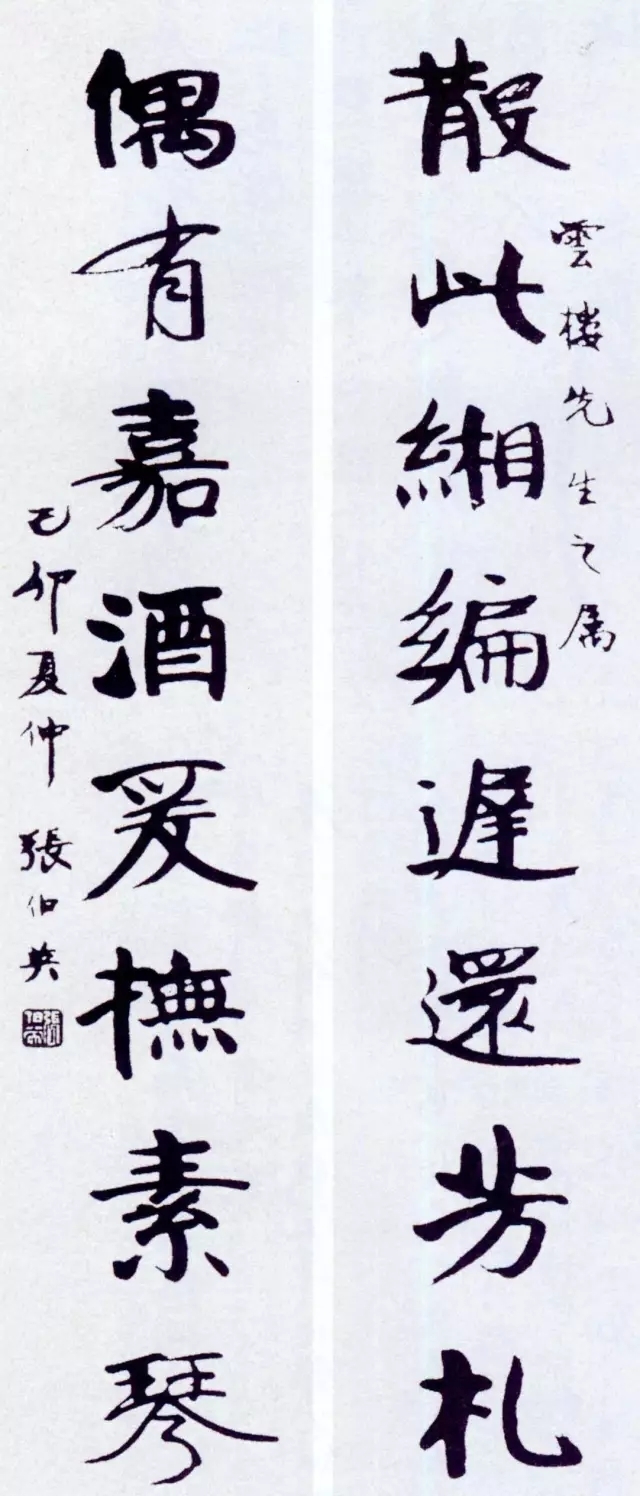 散此緗編遲還芳札
雲樓先生之属
偶有嘉酒爰撫素琴
己卯夏仲 張伯英